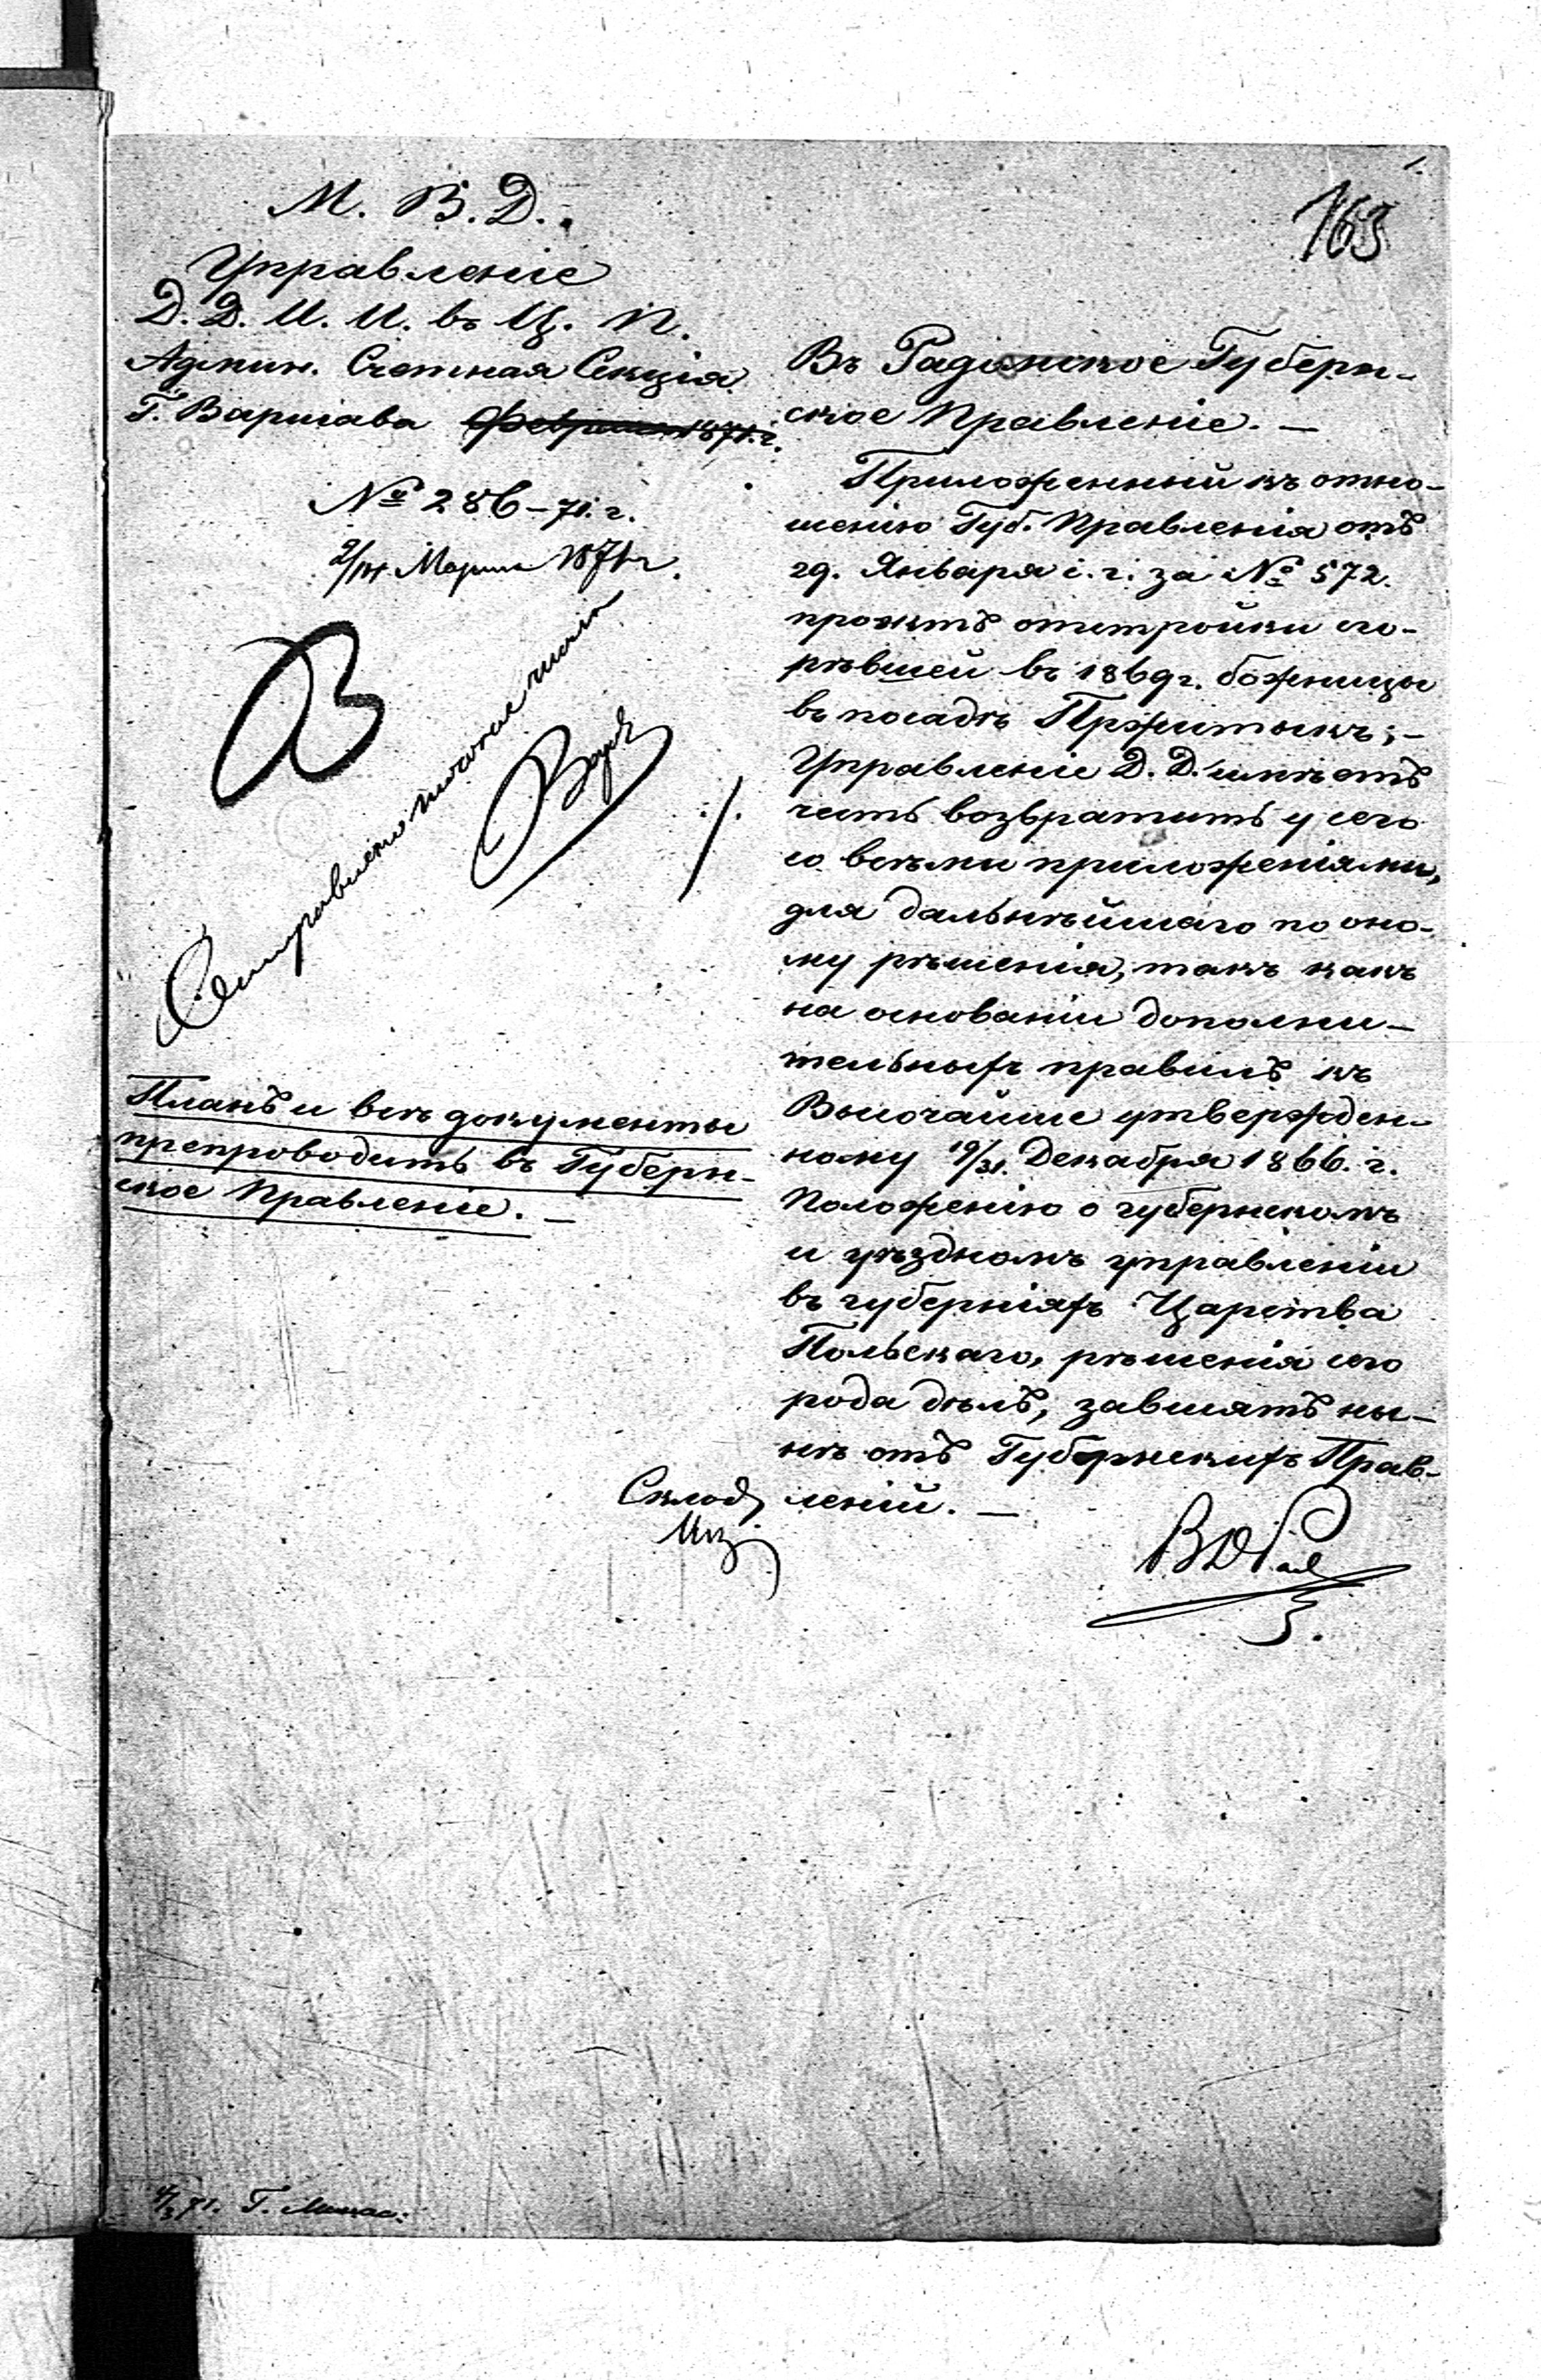 163
М. В. Д.
Управленіе
Д. Д. И. И. въ Ц. П.
Админ. Счетная Секція
Г. Варшава Февраля 1871. г.
№ 286 – 71. г.
2/14 Марта 1871 г.
Планъ и всѣ документы
препроводить въ Губерн-
ское Правленіе. –
Въ Радомское Губерн-
ское Правленіе. –
Приложенный къ отно-
шенію Губ. Правленія отъ
29. Января с. г. за № 572.
проэктъ отстройки сго-
рѣвшей въ 1869 г. божницы
въ посадѣ Пржитыкъ; –
Управленіе Д. Д. имѣетъ
честь возвратить у сего
со всѣми приложеніями,
для дальнѣйшаго по оно-
му рѣшенія, такъ какъ
на основаніи дополни-
тельныхъ правилъ къ
Высочайше утвержден-
ному 19/31. Декабря 1866. г.
Положенію о губернскомъ
и уѣздномъ управленіи
въ губерніяхъ Царства
Польскаго, рѣшенія сего
рода дѣлъ, зависятъ ны-
нѣ отъ Губернскихъ Прав-
леній. –